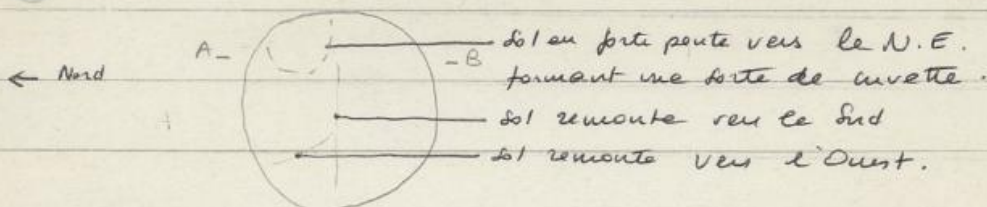 A - Sol en forte pente vers le N.E.
← Nord - B formant une sorte de cuvette.
Sol remonte vers le Sud
Sol remonte vers l'Ouest.